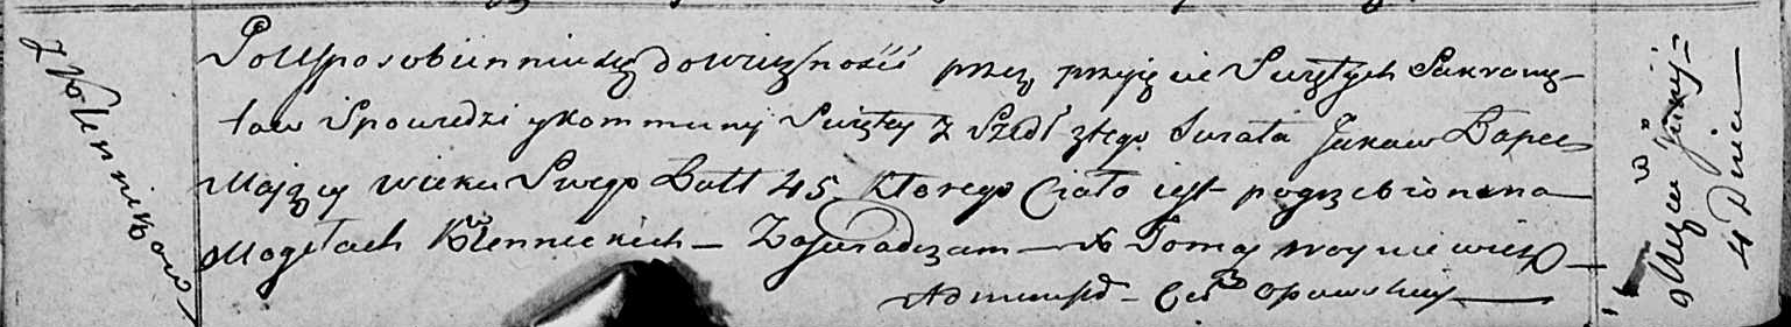 z Klennikow
Po Usposobienniu się do wieczności przez przyięcie Swiętych Sakramę-
tow Spowiedzi y kommunij Swiętey z Szedł z tego Swiata Jakow Łapec
Maiący wieku Swego Latt 45. Ktorego Ciało iest pogrzebionena
Mogiłach Klennickich - Zaswiadczam - X Tomasz Woyniewicz
Administ - Cer Opawskiey
Męca Junij =
4 Dnia